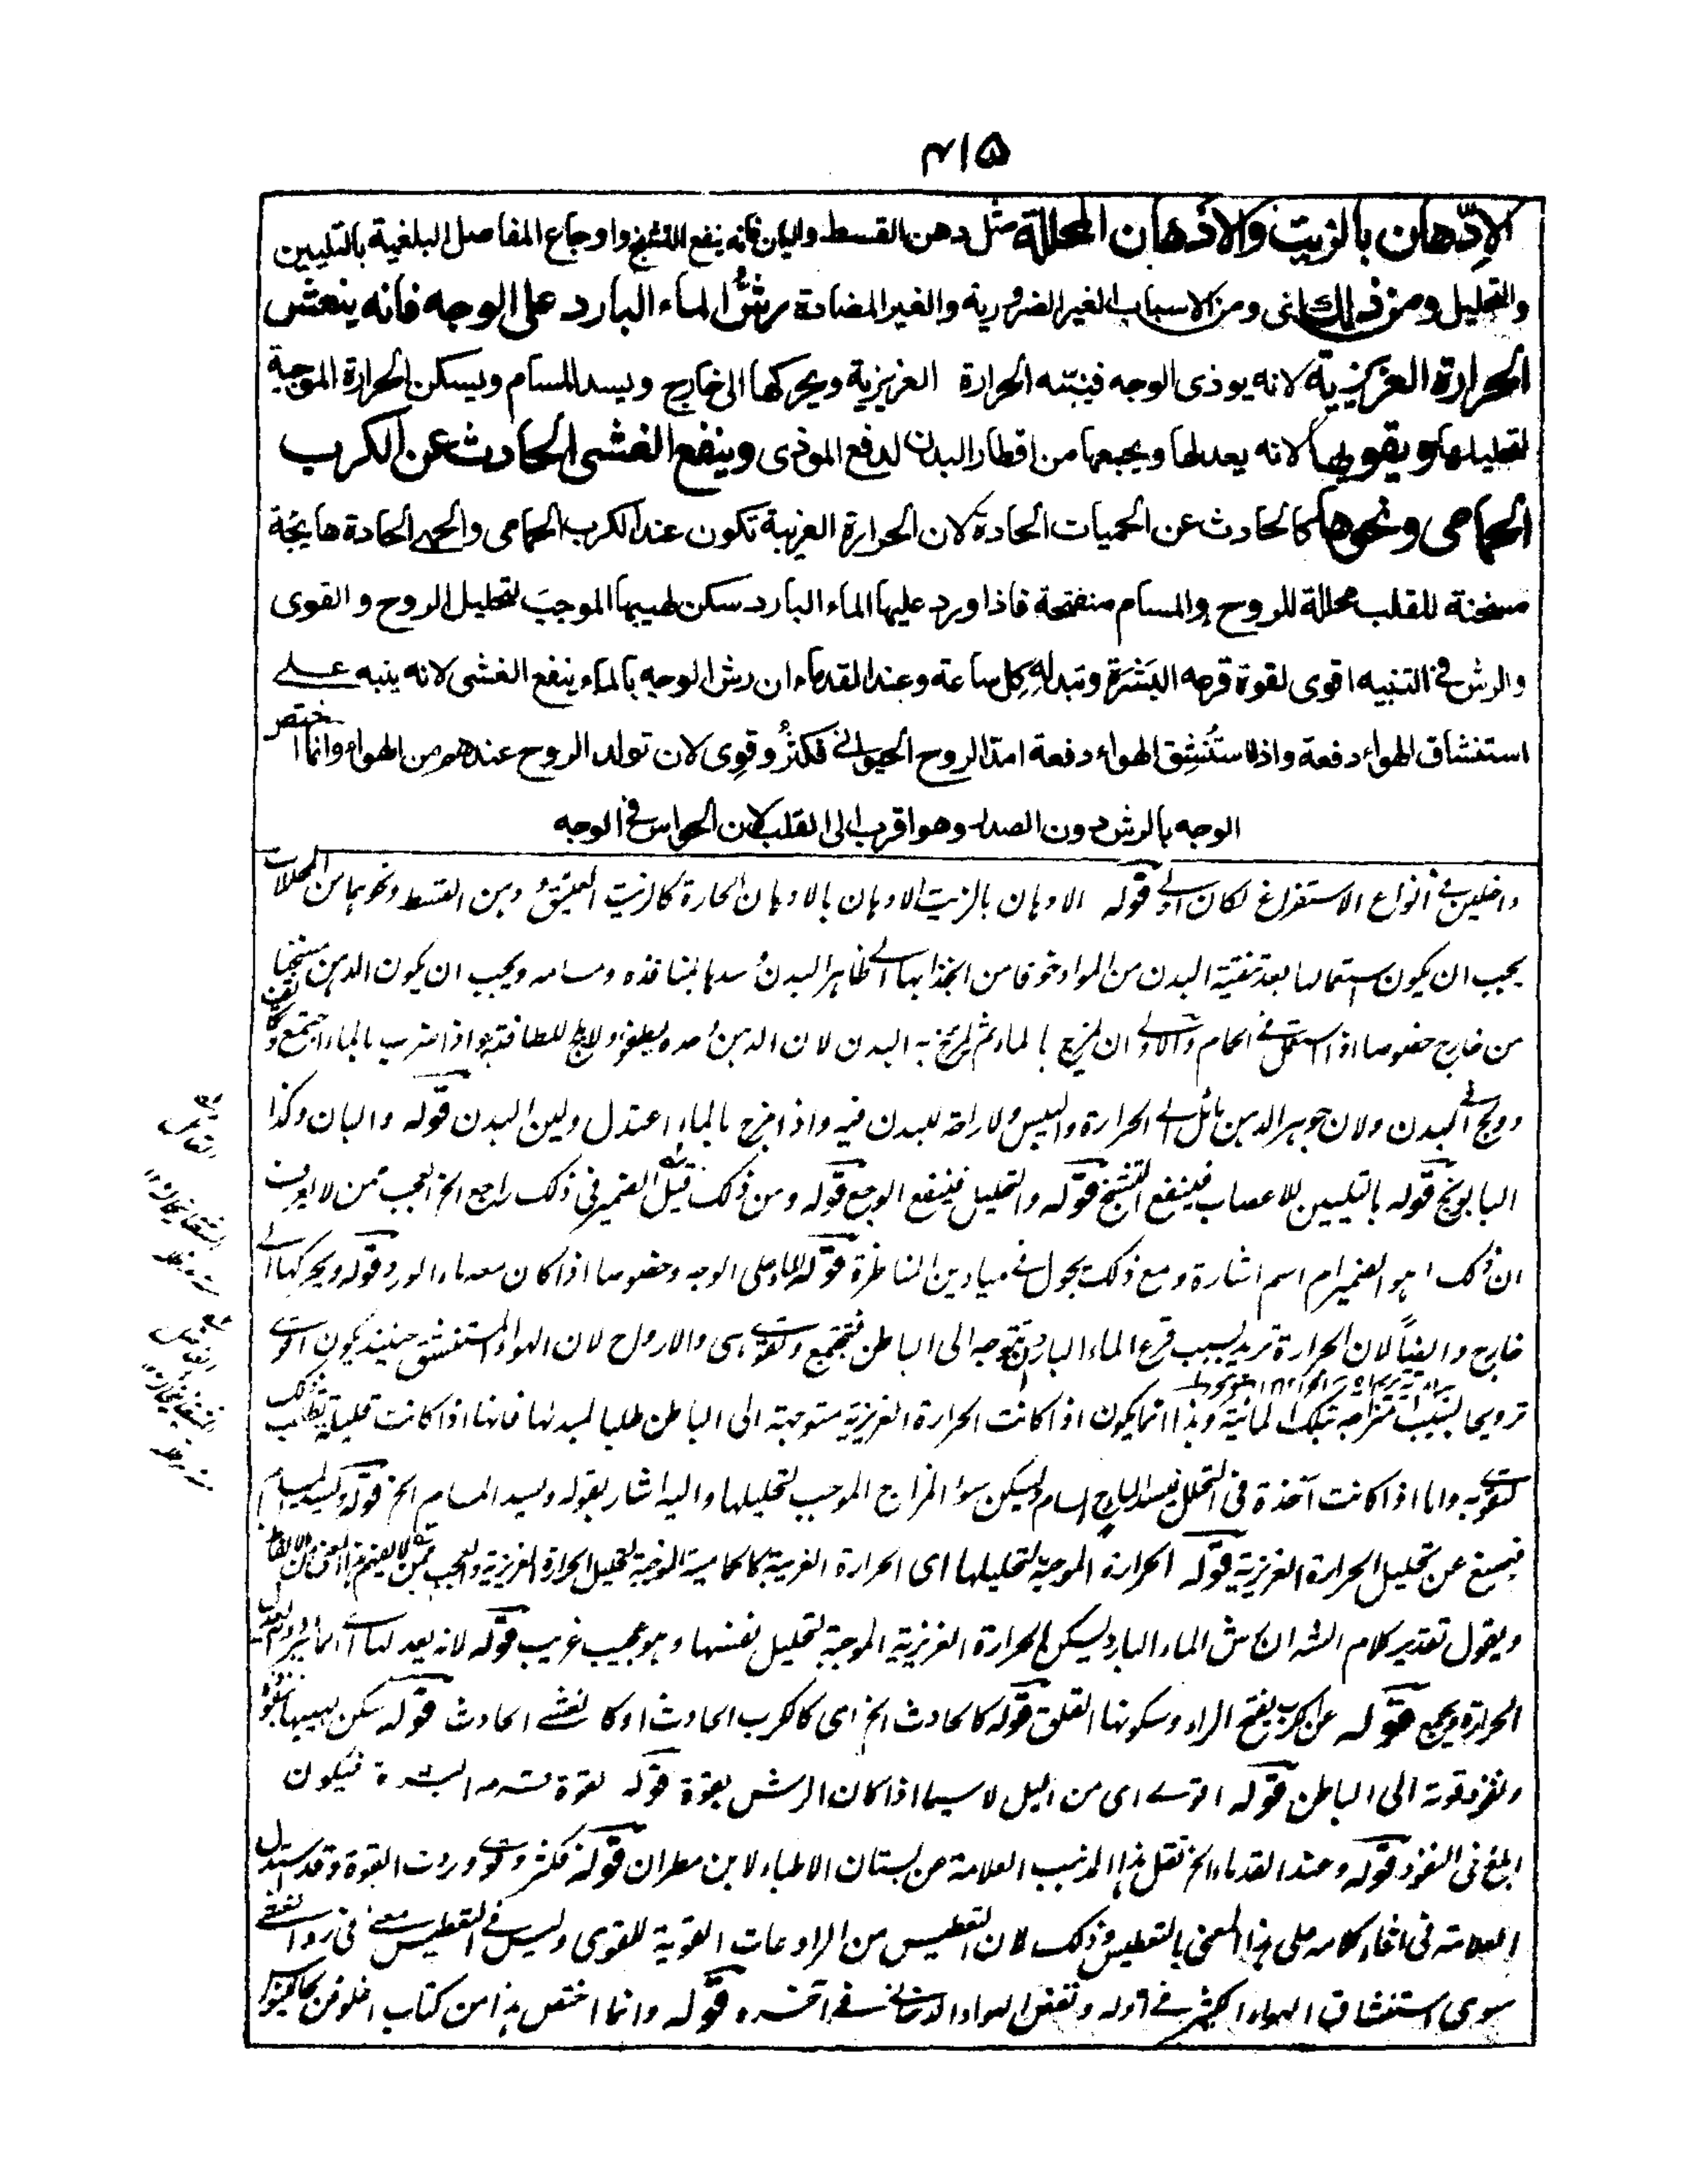 ۴۱۵
الادّهان بالزيت والادهان المحللة مثل دهن القسط والبان فانه ينفع التشنج واوجاع المفاصل البلغمية بالتليين
والتحليل ومن ذلك اى ومن الاسباب الغير الضرورية والغير المضادة رشُّ الماء البارد على الوجه فانه ينعش
الحرارة الغريزية لانه يوذى الوجه فينبّه الحرارة الغريزية ويحركها الى خارج ويسد المسام ويسكن الحرارة الموجبة
لتحليلها ويقويها لانه يعدلها ويجمعها من اقطار البدن لدفع الموذى وينفع الغشى الحادث عن الكرب
الحمامى ونحوها كالحادث عن الحميات الحادة لان الحرارة الغريبة تكون عند الكرب الحمامى والحمى الحادة هايجة
مسخنة للقلب محللة للروح والمسام منفتحة فاذا ورد عليها الماء البارد سكن لهيبها الموجب لتحليل الروح والقوى
والرش فى التنبيه اقوى لقوة قرعه البَشَرَة وتبدله كل ساعة وعند القدماء ان رش الوجه بالماء ينفع الغشى لانه ينبه على
استنشاق الهواء دفعة واذا استُنشِق الهواء دفعة امتد الروح الحيوانى فكثُر وقوِى لان تولد الروح عندهم من الهواء وانما اختص
الوجه بالرش دون الصدر وهو اقرب الى القلب لان الحواس فى الوجه
داخلين فى انواع الاستفراغ لكان اولى قوله الادهان بالزيت الادهان بالادهان الحارة كالزيت العتيق ودهن القسط ونحوهما من المحللات
يجب ان يكون استعمالها بعد تنقية البدن من المواد خوفا من انجذابها الى ظاهر البدن وسدها لمنافذه ومسامه ويجب ان يكون الدهن مسخنا
من خارج خصوصا اذا استعمل فى الحمام والاولى ان يمزج بالماء ثم يمرخ به البدن لان الدهن وحده يطفو ولا يلج للطافته واذا ضرب بالماء اجتمع
وولج فى البدن ولان جوهر الدهن مائل الى الحرارة واليبس ولا راحة للبدن فيه واذا مزج بالماء اعتدل ولين البدن قوله والبان وكذا
البابونج قوله بالتليين للاعصاب فينفع التشنج قوله والتحليل فينفع الوجع قوله ومن ذلك قيل الضمير فى ذلك راجع الخ العجب ممن لا يعرف
ان ذلك اهو الضمير ام اسم اشارة ومع ذلك يجول فى ميادين المناظرة قوله الماء على الوجه وخصوصا اذا كان معه ماء الورد قوله ويحركها الى
خارج وايضاً لان الحرارة تريد بسبب قرع الماء البارد تتوجه الى الباطن فتجتمع وتقوى هى والارواح لان الهواء المستنشق حينئذ يكون اقوى
ترويحا بسبب متزاجه بتلك المائية وهذا انما يكون اذا كانت الحرارة الغريزية متوجهة الى الباطن طلبا لمبدئها فانها اذا كانت قليلة تطلب
لتقوى به واما اذا كانت آخذة فى التحلل فيسد البارد المسام ويسكن سوء المزاج الموجب لتحليلها واليه اشار بقوله ويسد المسام الخ قوله ويسد المسام
فيمنع عن تحليل الحرارة الغريزية قوله الحرارة الموجبة لتحليلها اى الحرارة الغريبة كالحمامية الموجبة لتحليل الحرارة الغريزية والعجب ممن لا يفهم
ويقول تقدير كلام الشه ان رش الماء البارد يسكن الحرارة الغريزية الموجبة لتحليل نفسها وهو عجيب غريب قوله لانه يعدلها
الحرارة ويجمع قوله عن كرب بفتح الراء وسكونها القلق قوله كالحادث الخ اى كالكرب الحادث او كالغشى الحادث قوله سكن لهيبها
ونفوذ قوته الى الباطن قوله اقوى اى من البل لا سيما اذا كان الرش بقوة قوله لقوة قرعه البشرة فيكون
ابلغ فى النفوذ قوله وعند القدماء الخ نقل هذا المذهب العلامة من بستان الاطباء لابن مطران قوله فكثر وقوى وردت القوة وقد استدل
العلامة فى اثناء كلامه على هذا المعنى بالتعطيس وذلك لان التعطيس من الرادعات القوية للقوى وليس فى التعطيس معنى فى رد الغشى
سوى استنشاق الهواء الكثير فى اوله ونفض الهواء الدخانى فى آخره قوله وانما اختص هذا من كتاب اغلوقن